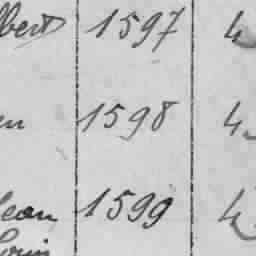 lbert 1597 4
en 1598 4
Jean 1599 4
Louis